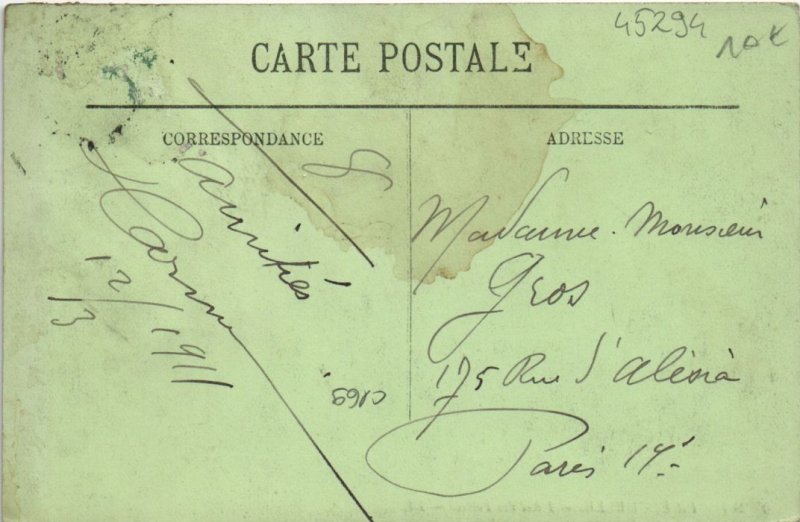 45294
10 €
CARTE POSTALE
CORRESPONDANCE
ADRESSE
amitiés
12/3/1911
Madame. Monsieur
Gros
175 Rue d'alésia
Paris 14e